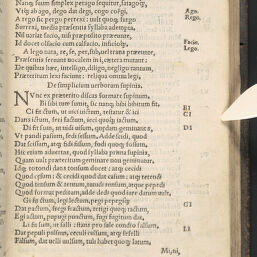 Namq; sum simplex perago sequitur, satagoq́;
Vtiq́; ab ago, dego dat degi, copo coëgi.
A rego sic pergo perrexi: vult quoq; surgo
Surrexi, media præsentis syllaba adempta.
Nil variat facio, nisi præposito præeunte,
Id docet olfacio cum calfacio, inficioq́;
A lego nata, re, se, per, sub, trans præeunte,
Præsentis seruant uocalem in i, cætera mutant:
De quibus hæc, intelligo, diligo, negligo tantum,
Præteritum lexi faciunt: reliqua omnia legi.
De simplicium verborum supinis.
NVnc ex præterito discas formare supinum,
Bi sibi tum sumit, sic nanq; bibi bibitum fit.
Ci fit ctum, ut uici uictum, testatur & ici
Dans ictum, feci factum, ieci quoq; iactum.
Di fit sum, ut uidi uisum, quædam geminant s,
Vt pandi passum, sedi sessum. Adde scidi, quod
Dat scissum, atq; fidi fissum, fodi quoq; fossum.
Hic etiam aduertas, quod syllaba prima supinis,
Quam uult præteritum geminari non geminatur,
Idq; totondi dans tonsum docet: atq; cecidi
Quod cæsum: & cecidi quod dat casum, atq; tetendi
Quod tensum & tentum, tutudi tunsum, atque pepedi
Quod format peditum, adde dedi quod iure datum vult.
Gi fit ctum, legi lectum, pegi pepigiq́;
Dat pactum, fregi fractum, tetigi quoq; tactum,
Egi actum, pupugi punctum, fugi fugitum dat.
Li fit sum, ut salli: stans pro sale condio salsum,
Dat pepuli pulsum, ceculi culsum, atq; fefelli
Falsum, dat uelli uulsum, tuli habet quoq; latum,
Mi, ni,
Ago.
Rego.
Facio.
Lego.
BI
CI
DI
GI
LI